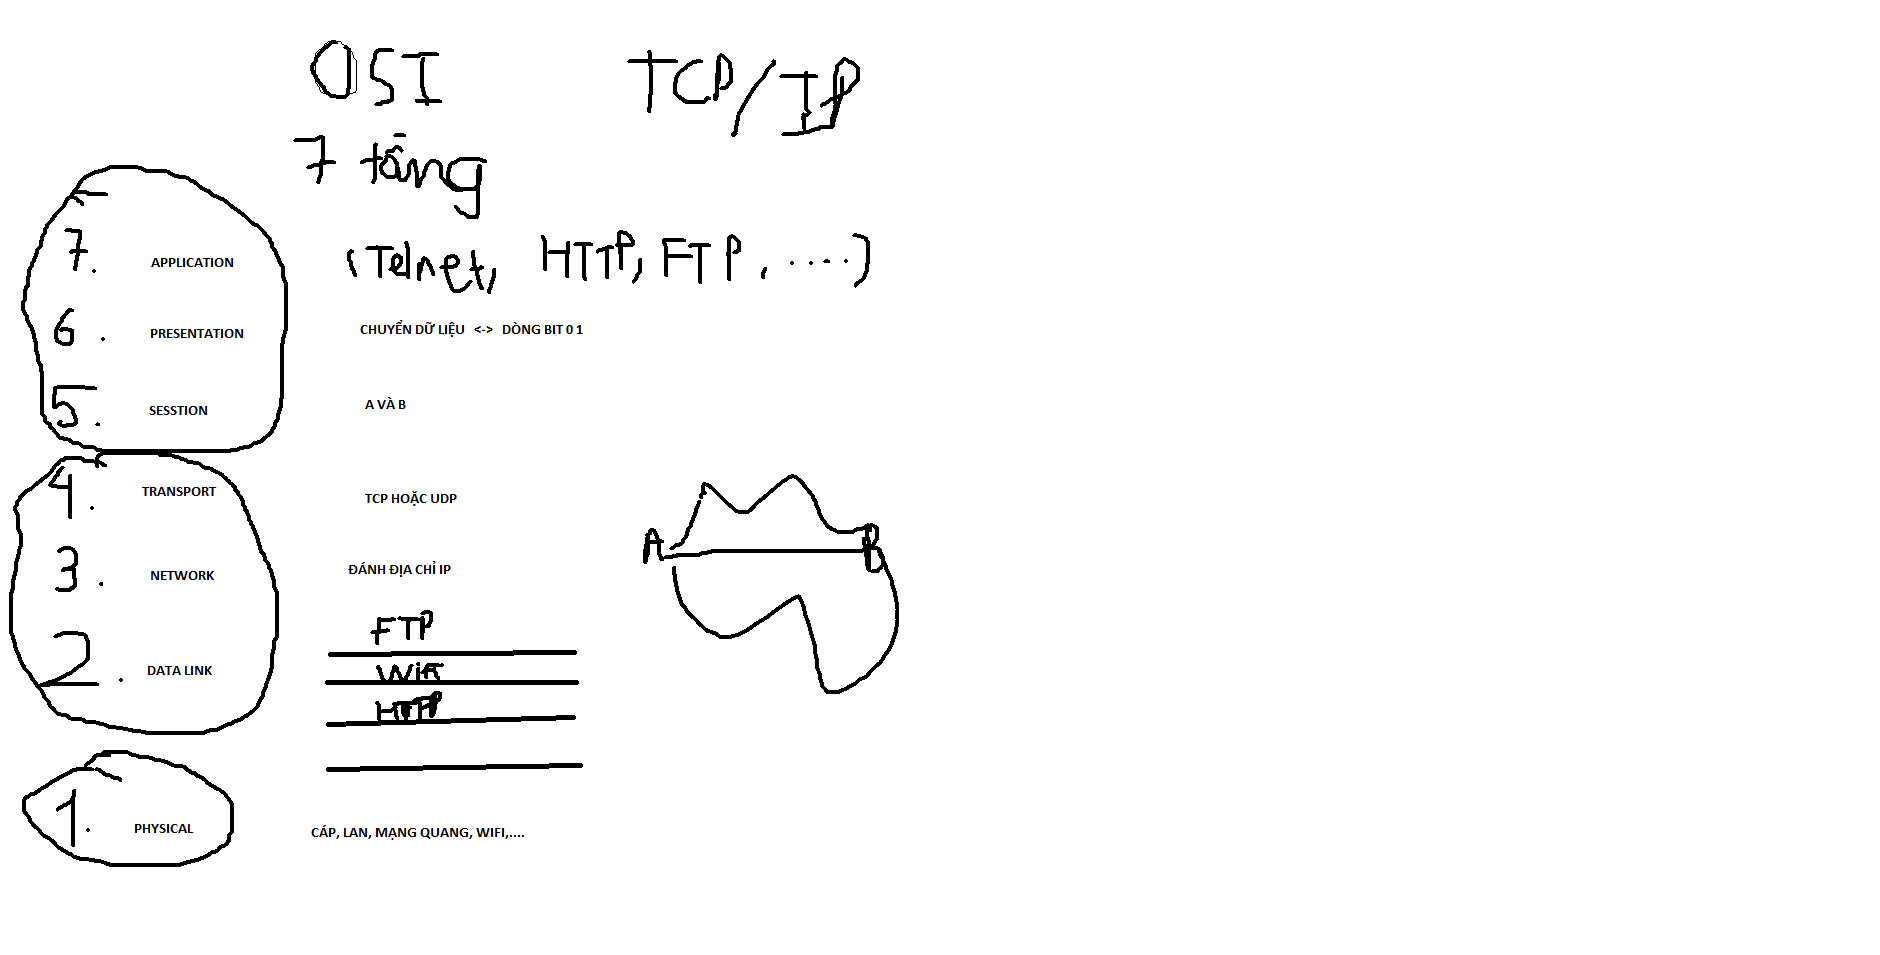 OSI TCP/IP
7 tầng
7. APPLICATION (Telnet, HTTP, FTP, ....)
6. PRESENTATION CHUYỂN DỮ LIỆU <-> DÒNG BIT 0 1
5. SESSTION A VÀ B
4. TRANSPORT TCP HOẶC UDP
A B
3. NETWORK ĐÁNH ĐỊA CHỈ IP
FTP
2. DATA LINK Wifi
HTTP
1. PHYSICAL CÁP, LAN, MẠNG QUANG, WIFI,....